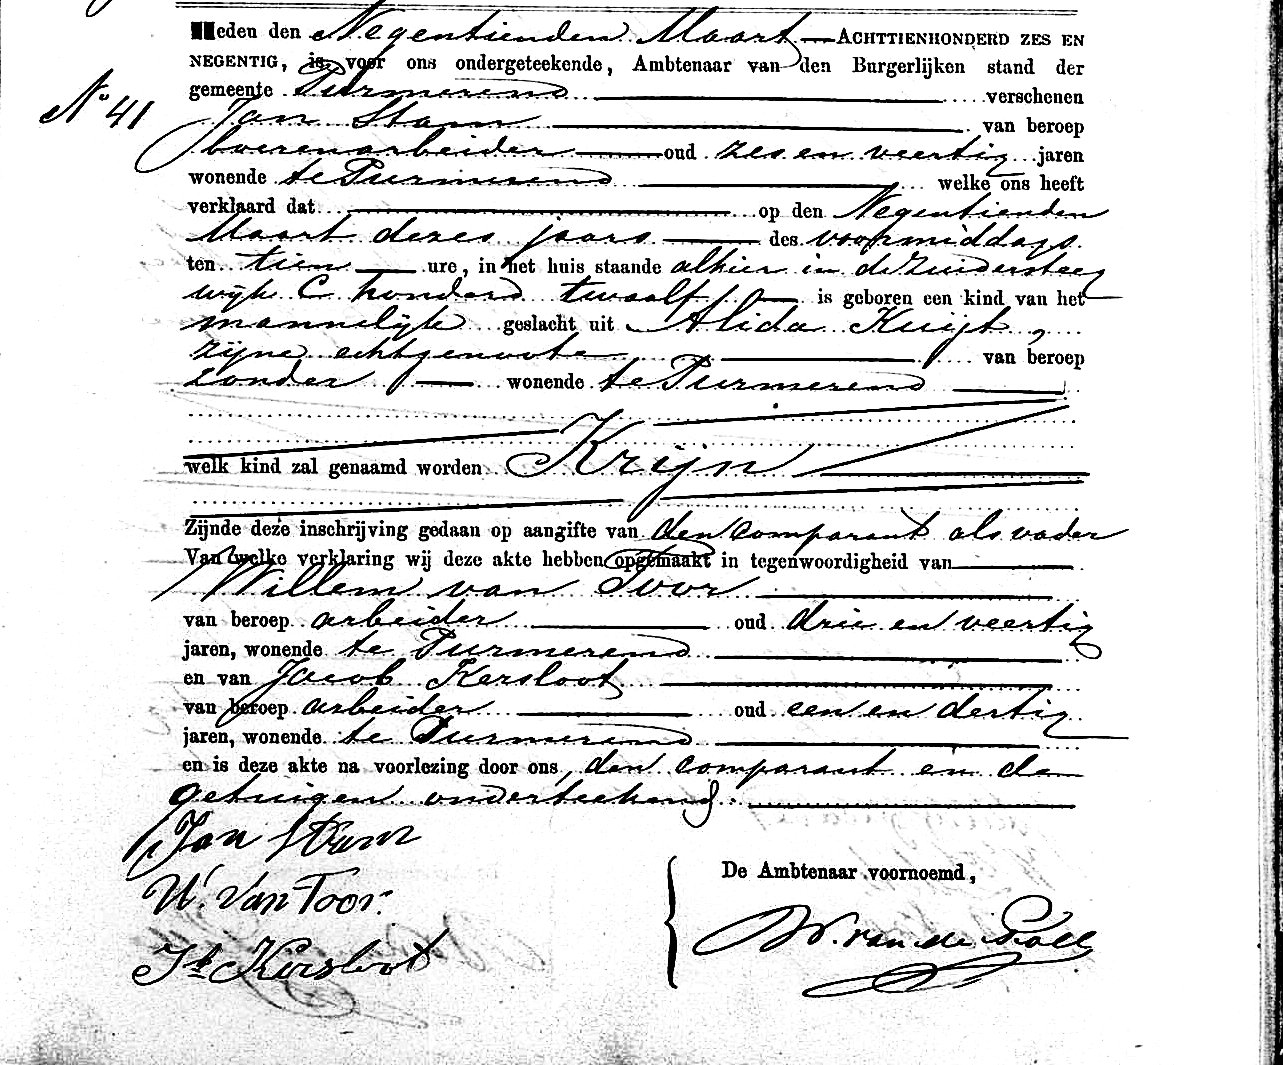 Heden den Negentienden Maart ACHTTIENHONDERD ZES EN
NEGENTIG, is voor ons ondergeteekende, Ambtenaar van den Burgerlijken stand der
gemeente Purmerend verschenen
No 41
Jan Stam van beroep
boerenarbeider oud zes en veertig jaren
wonende te Purmerend welke ons heeft
verklaard dat op den Negentienden
Maart dezes jaars des voormiddags
ten tien ure, in het huis staande alhier in de Zuidersteeg
wijk C honderd twaalf is geboren een kind van het
mannelijk geslacht uit Alida Kuijt,
zijne echtgenoote van beroep
zonder wonende te Purmerend
welk kind zal genaamd worden Krijn
Zijnde deze inschrijving gedaan op aangifte van den comparant als vader
Van welke verklaring wij deze akte hebben opgemaakt in tegenwoordigheid van
Willem van Toor
van beroep arbeider oud drie en veertig
jaren, wonende te Purmerend
en van Jacob Kersloot
van beroep arbeider oud een en dertig
jaren, wonende te Purmerend
en is deze akte na voorlezing door ons, den comparant en de
getuigen onderteekend.
Jan Stam
W. van Toor.
Jb Kersloot
De Ambtenaar voornoemd,
W. van de Poll